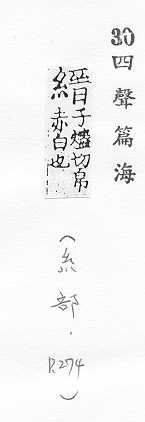 30 四聲篇海
縉 子燼切帛
赤白也
(糸部. P.274)